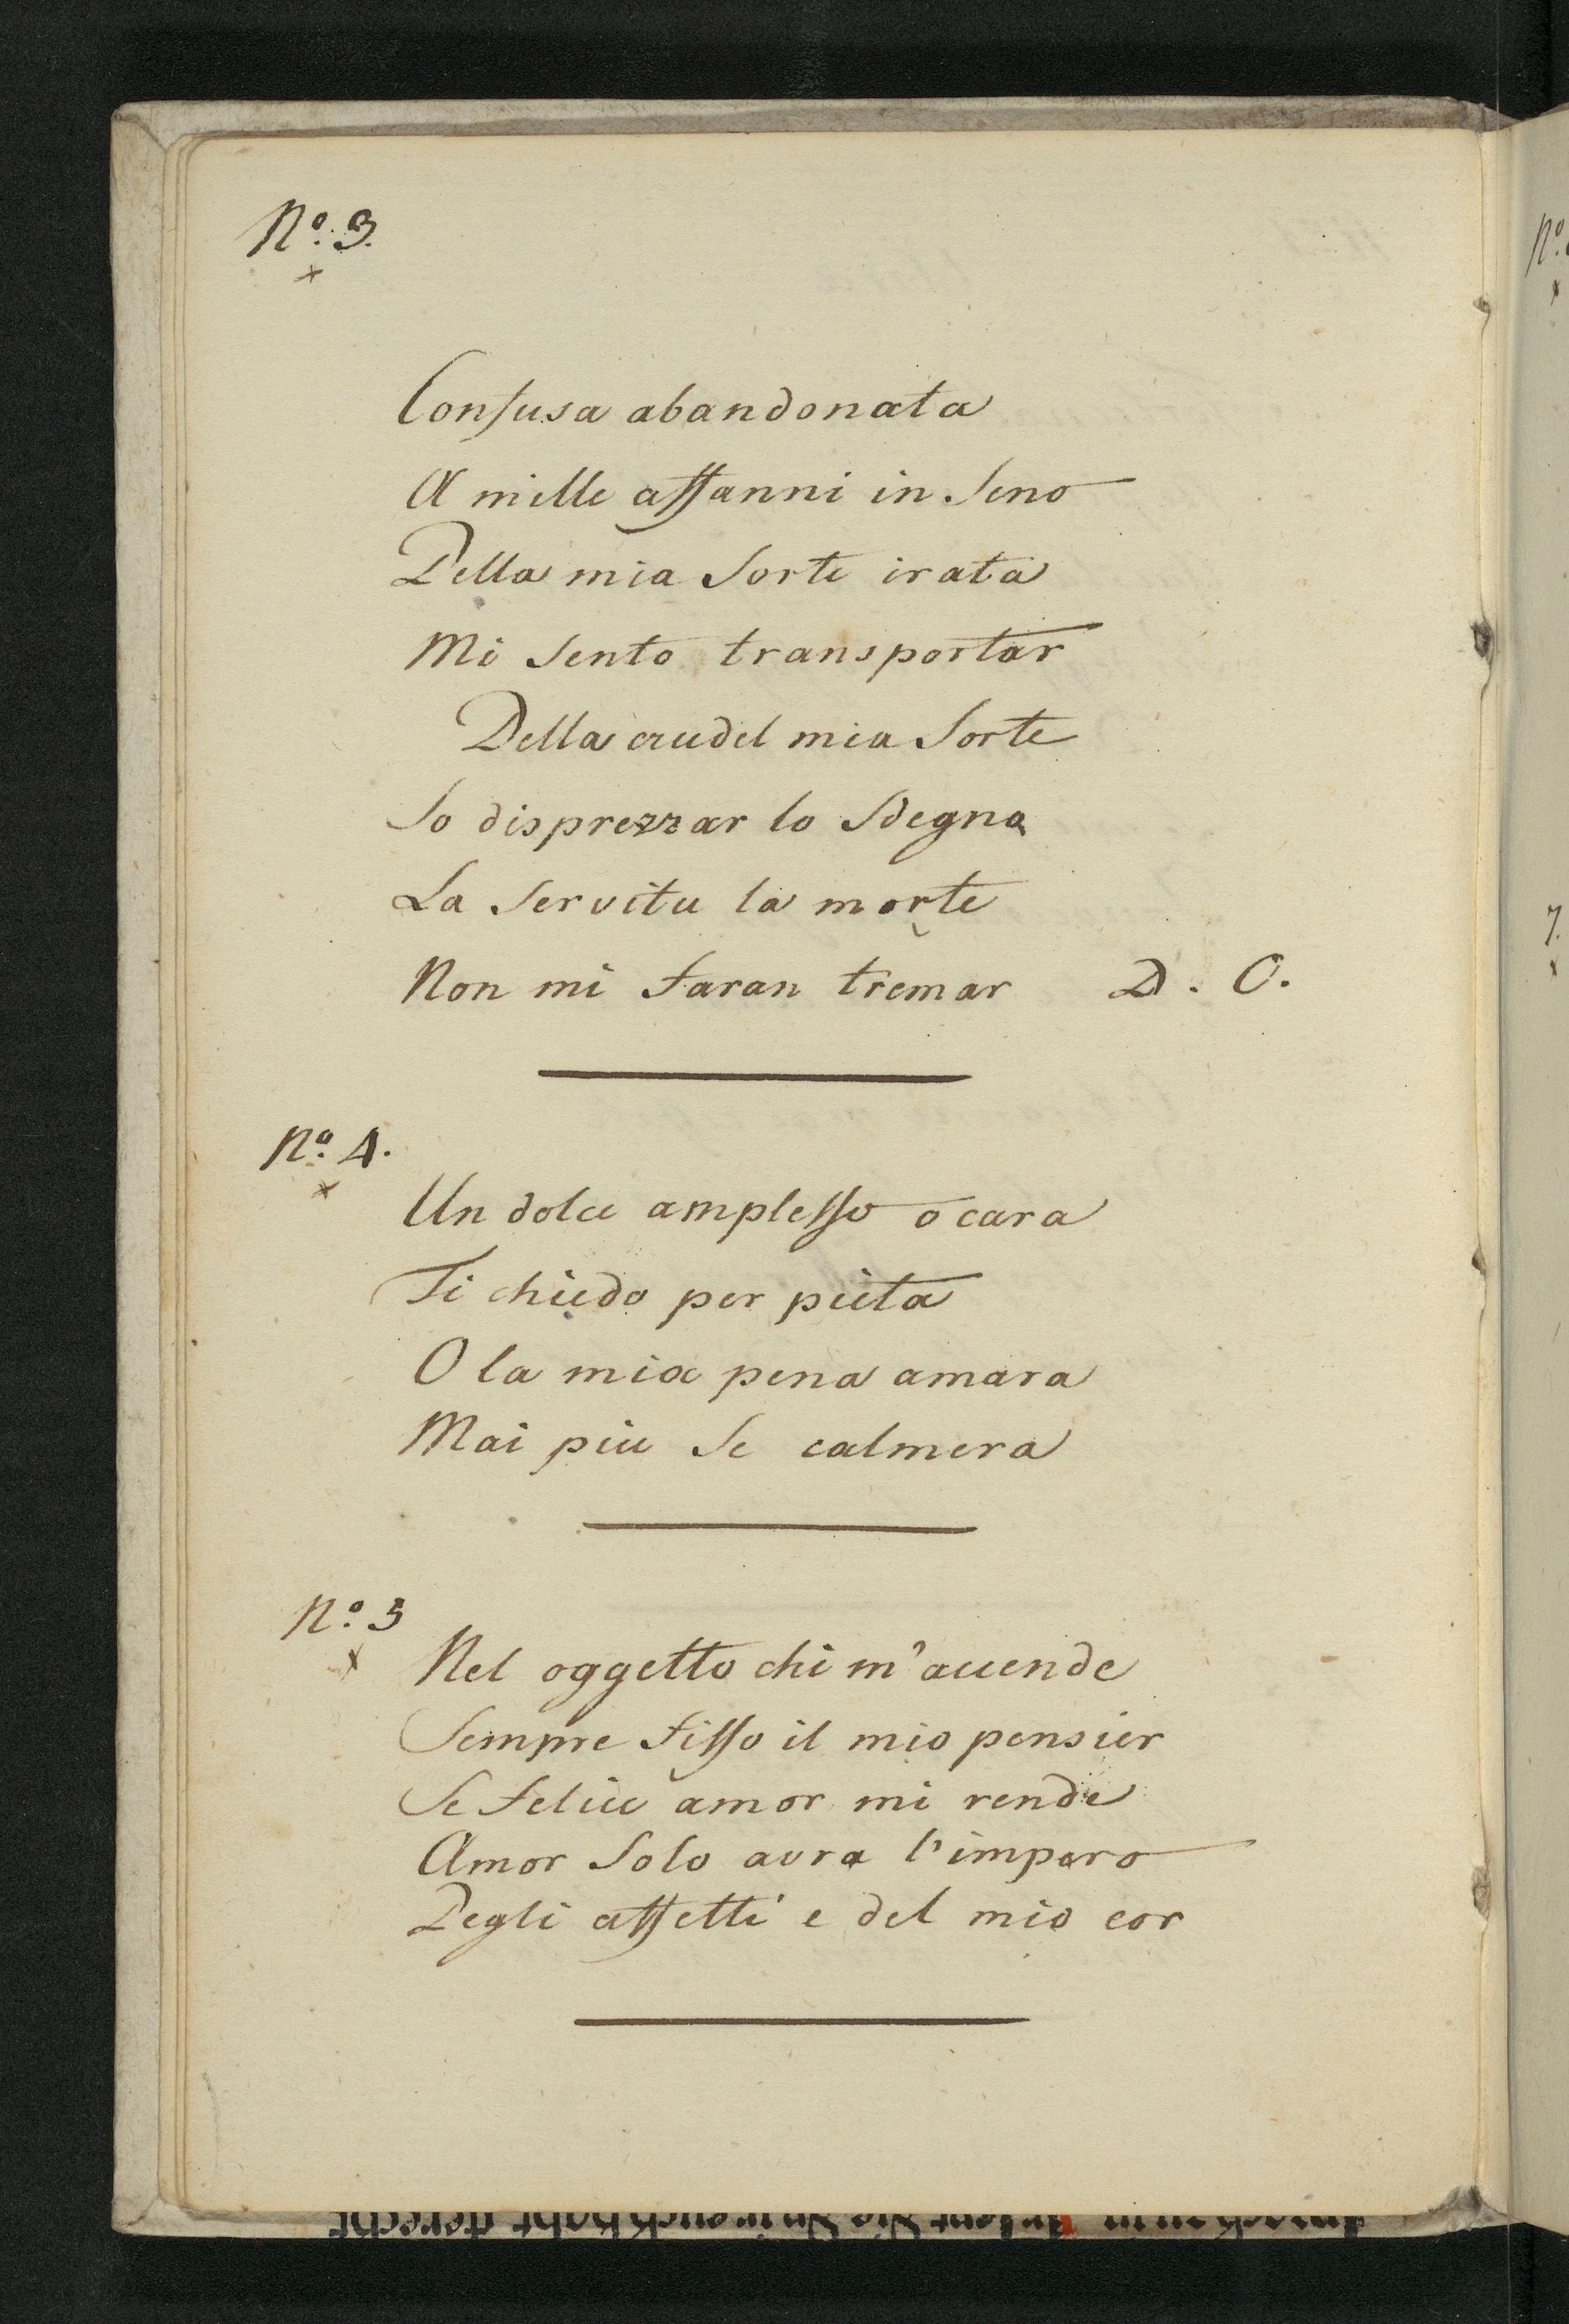 No. 3.
x
Confusa abandonata
A mille affanni in Seno
Della mia Sorte irata
Mi Sento transportar
Della crudel mia Sorte
So disprezzar lo Sdegno
La Servitu la morte
Non mi faran tremar D. C.
No. 4.
x
Un dolce amplesso o cara
Ti chiedo per pieta
O la mia pena amara
Mai piu Se calmera
No. 5
x
Nel oggetto chi m'accende
Sempre fisso il mio pensier
Se felice amor mi rende
Amor Solo avra l'impero
Degli affetti e del mio cor
No.
x
7.
x